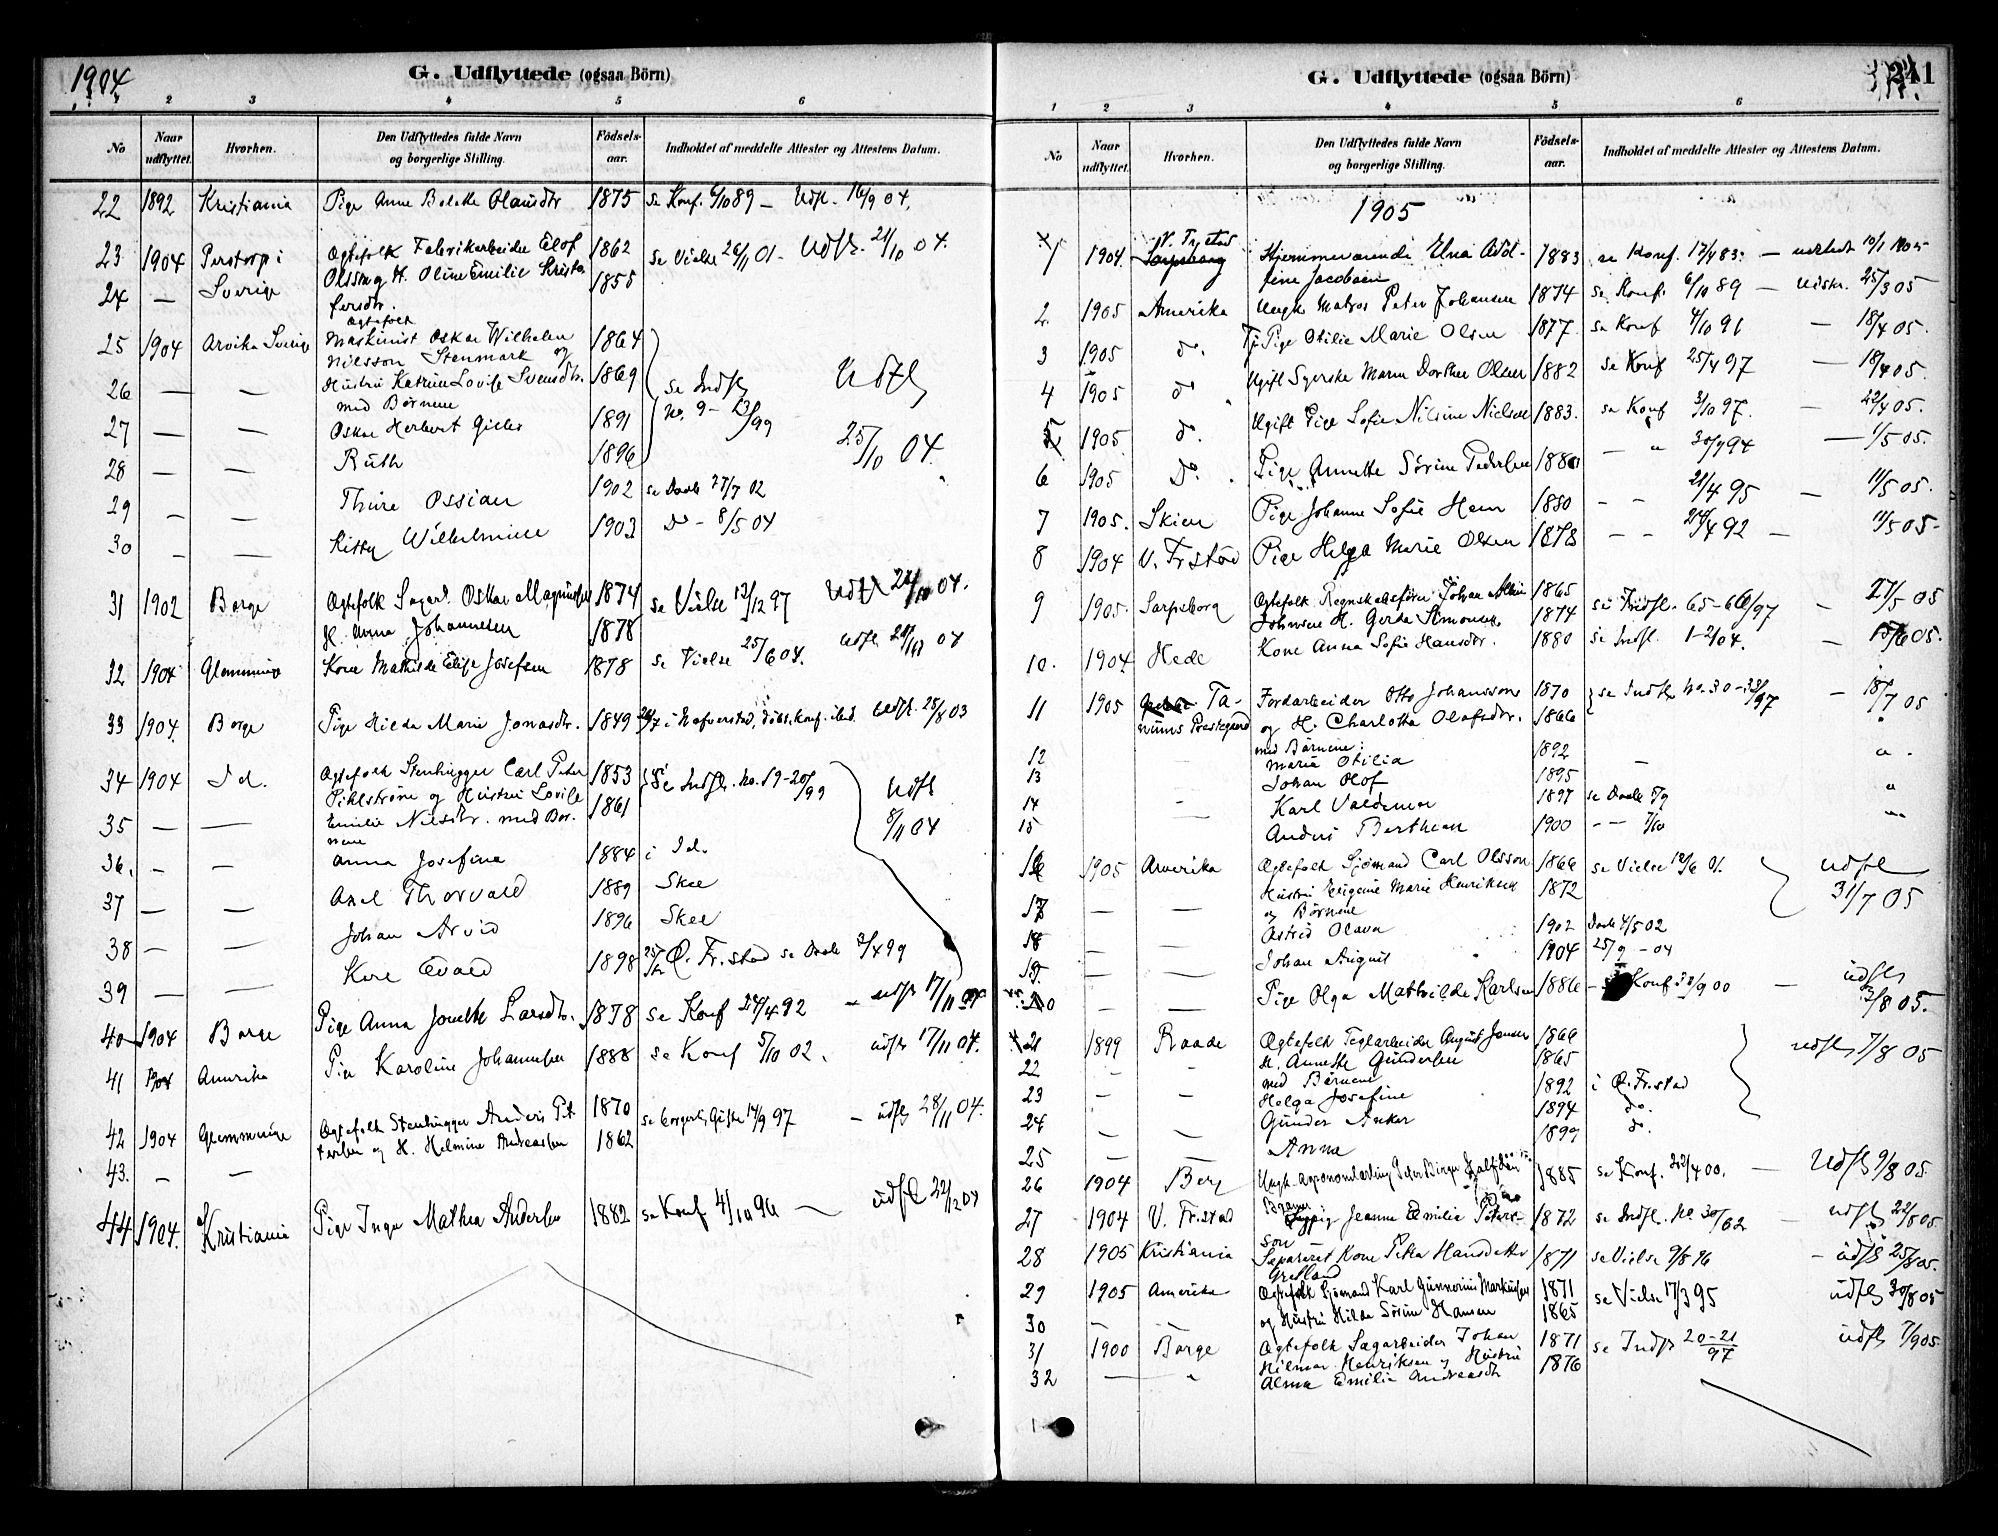 1904
G. Udflyttede (ogsaa Börn)
2 3 4 5 6
No | Naar udflyttet. | Hvorhen. | Den Udflyttedes fulde Navn og borgerlige Stilling. | Födsels-aar. | Indholdet af meddelte Attester og Attestens Datum.
22 1892 Kristiania Pige Anne Bolette Olausdtr 1875 se Konf. 6/10 89 – Udfl. 16/9 04.
23 1904 Perstorp i Ægtefolk Fabrikarbeider Elof 1862 se Vielse 26/11 01 – Udfl. 21/10 04.
24 — Sverige Olsson og H. Oline Emilie Kristo- 1855
fersdtr.
Ægtefolk
25 1904 Arvika Sverige Maskinist Oskar Wilhelm 1864
Nilsson Stenmark og
26 — — Hustru Katrine Lovise Svensdtr. 1869 se Indfl. Udfl
med Børnene
27 — — Oskar Herbert Gideo 1891 No. 9 – 13/ 99
28 — — Ruth 1896 25/10 04.
29 — — Thure Ossian 1902 se Daab 27/7 02
30 — — Kitty Wilhelmine 1903 Do – 8/5 04
31 1902 Borge Ægtefolk Sagarb. Oskar Magnussen 1874 se Vielse 13/12 97 Udfl 24/10 04.
H. Anna Johannesen 1878
32 1904 Glemminge Kone Mathilde Elise Josefsen 1878 se Vielse 25/6 04. udfl 04
33 1904. Borge Pige Hilda Marie Jonasdtr. 1849 i Nafverstad, döbt. konf. ibid. Udfl. 25/8 03
34 1904 Id. Ægtefolk Stenhugger Carl Peter 1853 Se Indfl. No. 19-20/99 Udfl
Pihlström og Hustru Lovise 1861 8/11 04
35 — — Emilie Nilsdtr. med Bör-
nene
36. — — Anna Josefine 1884 i Id.
37 — — Axel Thorvald 1889 Skee
38 — — Johan Arvid 1896 Skee
39 — — Kore Edvald 1898 Ø. Fr.stad se Daab 3/4 99
40 1904 Borge Pige Anna Josette Larsdtr. 1878 se Konf 24/4 92 – udfl 17/11 04
41 1904 Amerika Pige Karoline Johannesen 1888 se Konf 5/10 02. udfl 17/11 04.
42 1904 Glemminge Ægtefolk Stenhugger Anders Pet- 1870 se borgerl. Gifte 14/9 97 – udfl 28/11 04.
tersen og H. Helmine Andreassen 1862
43. — —
44 1904. Kristiania Pige Inga Mathea Andersen 1882 se Konf 4/10 96 — udfl 22/12 04
G. Udflyttede (ogsaa Börn)
241
1 2 3 4 5 6
No | Naar udflyttet. | Hvorhen. | Den Udflyttedes fulde Navn og borgerlige Stilling. | Födsels-aar. | Indholdet af meddelte Attester og Attestens Datum.
1905
1 1904. V. Frstad Sarpsborg Hjemmeværende Elna Adol- 1883 se Konf. – udstedt 10/1 1905
fine Jacobsen
2 1905 Amerika Ungk Matros Peter Johansen 1874 se Konf. 6/10 89 – Udskr. 25/3 05
3 1905 do. Tj. Pige Otilie Marie Olsen 1877 se Konf 4/10 91 – 18/4 05.
4 1905 do Ugift Syerske Maren Dorthea Olsen 1882 se Konf 25/4 97 – 18/4 05.
5 1905. do. Ugift Pige Sofie Nilsine Nielsen 1883. se Konf 3/10 97. – 22/4 05.
6 1905 Do. Pige Annette Sørine Pedersen 1880 – " 30/9 94 – 1/5 05.
7 1905. Skien Pige Johanne Sofie Hem 1880 – – 21/4 95 – 11/5 05.
8 1904 V. Frstad Pige Helga Marie Olsen 1878 – – 24/4 92 – 11/5 05.
9 1905. Sarpsborg Ægtefolk Regnskabsfører Johan Albin 1865 se Indfl. 65-66/97 – 27/5 05
Johnsen H. Gerda Simonsen 1874
10. 1904 Hede Kone Anna Sofie Hansdtr. 1880 se Indfl. 1-2/04. – 15/6 05.
11 1905 Ta- Jordarbeider Otto Johansson 1870 se Indfl No. 30-33/97 – 18/7 05
nums Prestegjeld og H. Charlotta Olofsdtr. 1866
med Børnene:
12 — Maria Otilia 1892 — "
13 Johan Olof 1895
14 — Karl Valdemar 1897 se Daab 7/9 "
15 Anders Berthean 1900 – – 7/10 "
16 1905 Amerika Ægtefolk Sjømand Carl Olsson 1866 se Vielse 12/6 01. Udfl
Hustru Eugenie Marie Henriksen 1872 31/7 05
17 — — og Børnene
18 — — Astrid Olava 1902 Daab 4/5 02
19. — — Johan August 1904 25/9 – 04
20 — — Pige Olga Mathilde Karlsen 1886 – Konf 30/9 00 — udfl 3/8 05.
21 1899 Raade Ægtefolk Teglarbeider August Jensen 1866 udfl 7/8 05
22 – – H. Annette Gundersen 1865
med Børnene
23 – – Helga Josefine 1892 i Ø. Fr.stad
24 — — Gunder Anker 1894 do.
25 — — Anna 1899 do.
26 1904 Berg Ungk. Agronomlærling Peter Birger Halfdan 1885 se Konf. 22/4 00. — Udfl 9/8 05.
27 1904 V. Fr.stad Jeanne Emilie Peters- 1872 se Indfl. No 30/02 – udfl 22/8 05.
son
28 1905 Kristiania Separeret Kone Petra Hansdatter 1871 se Vielse 9/8 96 – udfl 25/8 05.
Grefland
29 1905 Amerika Ægtefolk Sjømand Karl Gunnerius Markussen 1871 se Vielse 17/3 95 udfl 30/8 05
30 – – og Hustru Hilda Sørine Hansen 1865
31 1900 Borge Ægtefolk Sagarbeider Johan 1871 se Indfl 20-21/97 udfl 7/9 05.
Hilmar Henriksen og Hustru 1876
32 — " Alma Emilie Andreasdtr